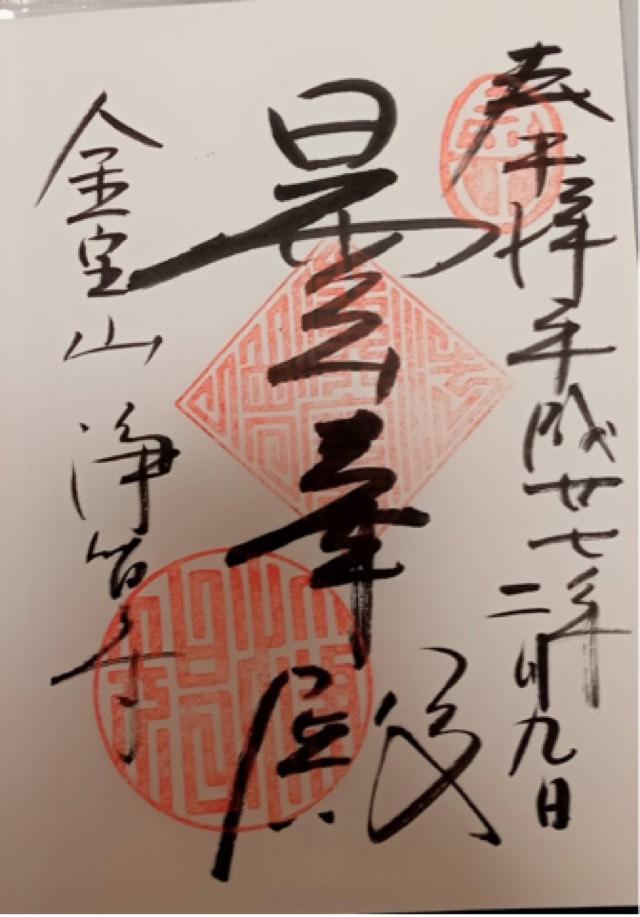 奉拝 平成廿七年二月九日
曇華殿
金宝山 浄智寺